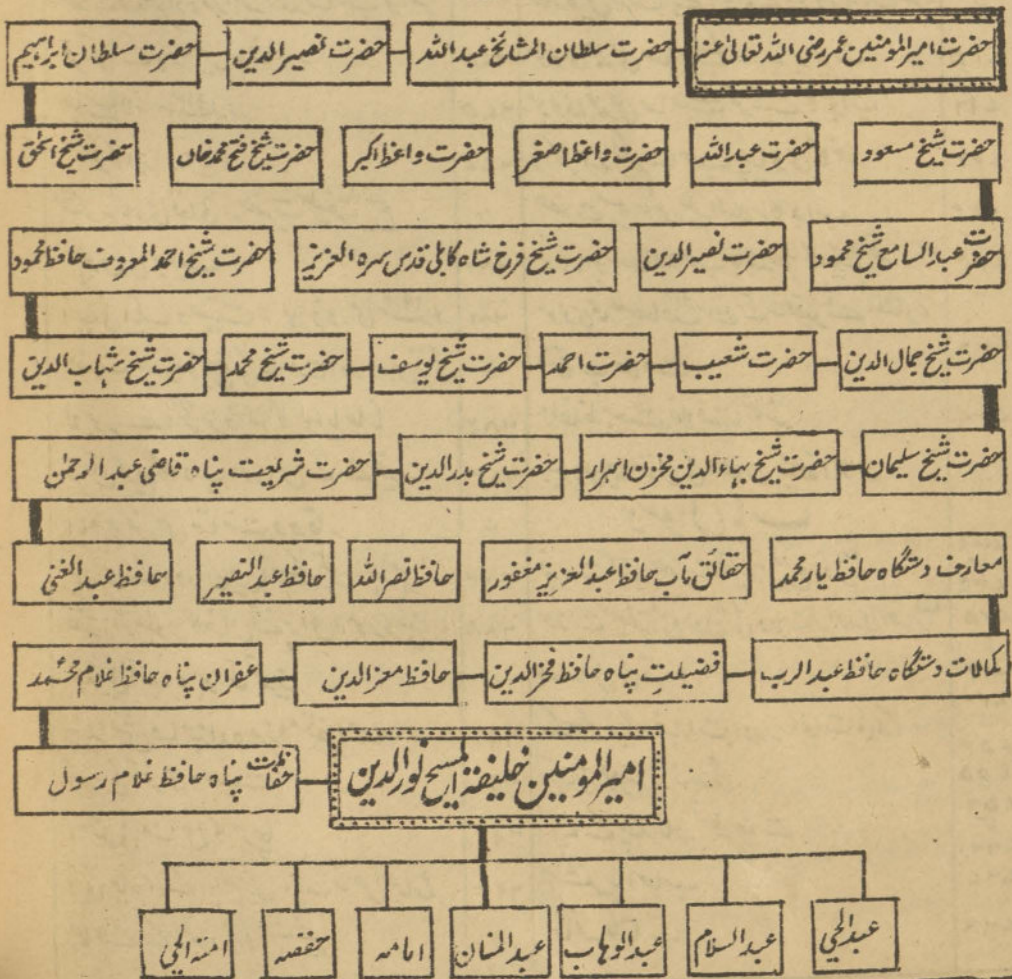 حضرت امیر المومنین عمر رضی اللہ تعالیٰ عنہ حضرت سلطان المشائخ عبد اللہ حضرت نصیر الدین حضرت سلطان ابراہیم
حضرت شیخ اسحٰق حضرت شیخ فتح محمد خاں حضرت واعظ اکبر حضرت واعظ اصغر حضرت عبد اللہ حضرت شیخ مسعود
حضرت عبد السامع شیخ محمود حضرت نصیر الدین حضرت شیخ فرخ شاہ کابلی قدس سرہ العزیز حضرت شیخ احمد المعروف حافظ محمود
حضرت شیخ شہاب الدین حضرت شیخ محمد حضرت شیخ یوسف حضرت احمد حضرت شعیب حضرت شیخ جمال الدین
حضرت شیخ سلیمان حضرت شیخ بہاء الدین مخزن اسرار حضرت شیخ بدر الدین حضرت شریعت پناہ قاضی عبد الرحمٰن
حافظ عبد الغنی حافظ عبد النصیر حافظ نصر اللہ حقائق مآب حافظ عبد العزیز مغفور معارف دستگاہ حافظ یار محمد
بکمالات دستگاہ حافظ عبد الرب فضیلت پناہ حافظ فخر الدین حافظ معز الدین غفران پناہ حافظ غلام محمد
حفاظت پناہ حافظ غلام رسول امیر المومنین خلیفۃ المسیح نور الدین
عبد الحی عبد السلام عبد الوہاب عبد المنان امامہ حفصہ امۃ الحی